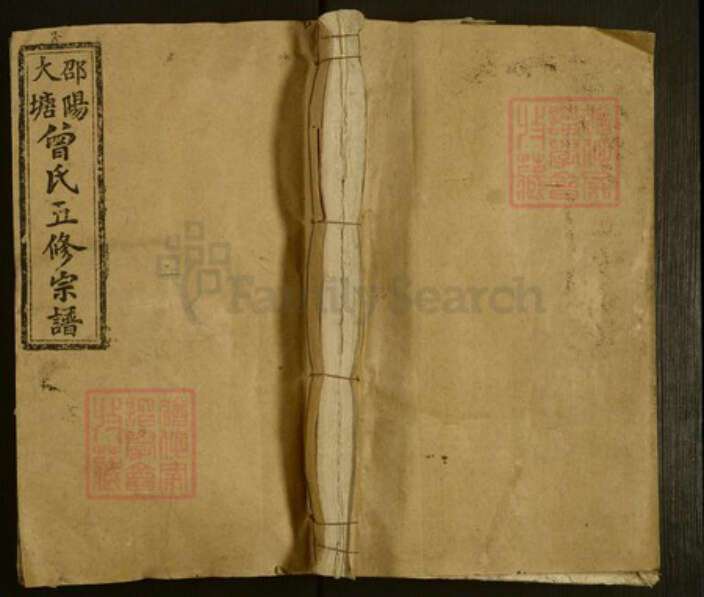 邵陽
大塘
曾氏五修宗譜
FamilySearch